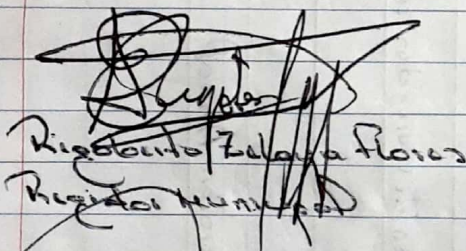 Rigoberto Zelaya Flores
Regidor Municipal